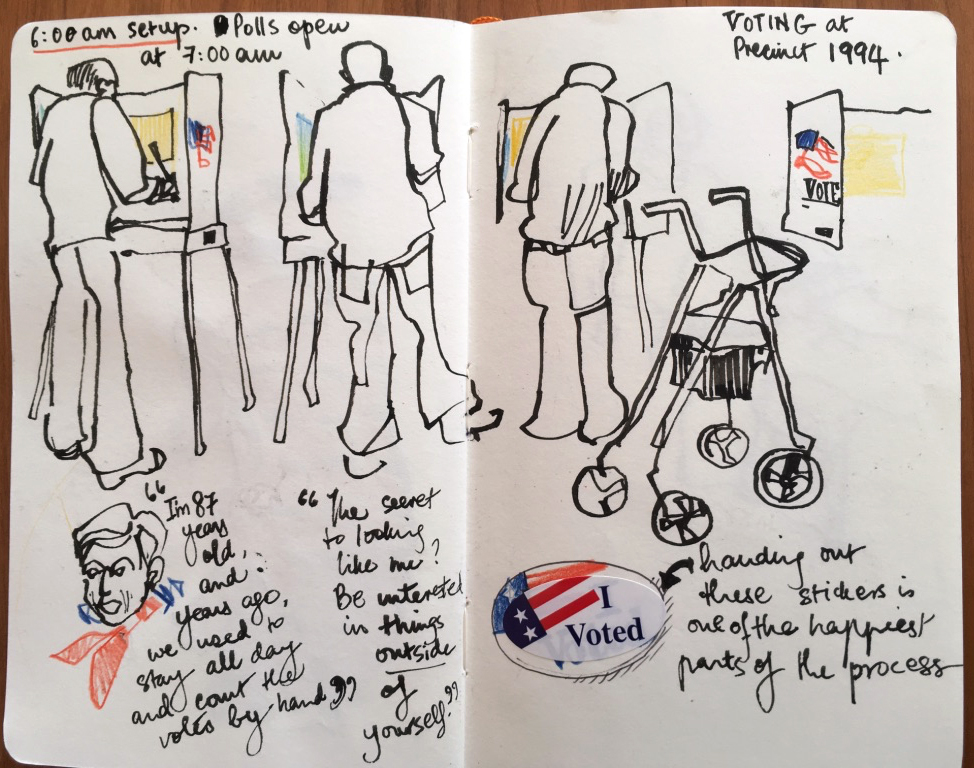 6:00 am setup. Polls open
at 7:00 am
VOTING at
Precinct 1994.
VOTE
"I'm 87
years
old,
and
years ago,
we used to
stay all day
and count the
votes by hand"
"The secret
to looking
like me?
Be interested
in things
outside
of
yourself."
I
Voted
handing out
these stickers is
one of the happiest
parts of the process